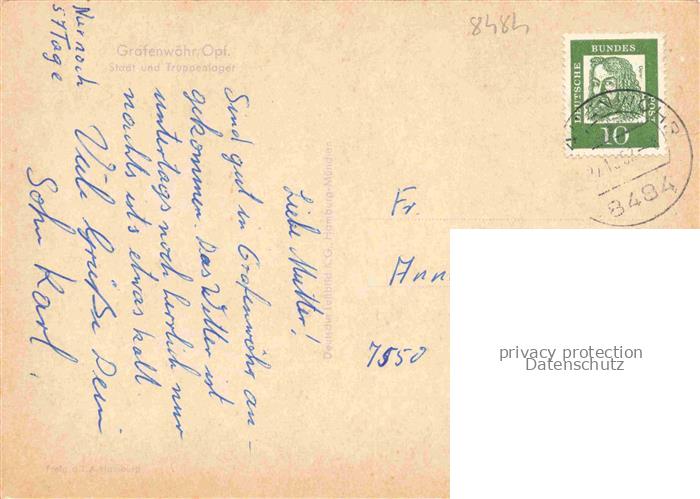 8484
Grafenwöhr, Opf.
Stadt und Truppenlager
Nur noch
57 Tage
Liebe Mutter!
Sind gut in Grafenwöhr an-
gekommen. Das Wetter ist
untertags noch herrlich nur
nachts ist's etwas kalt
Viele Grüße Dein
Sohn Karl.
Deutsche Luftbild K.G. Hamburg-München
DEUTSCHE BUNDES POST
Dürer
10
8484
Fr.
Ann
7550
privacy protection
Datenschutz